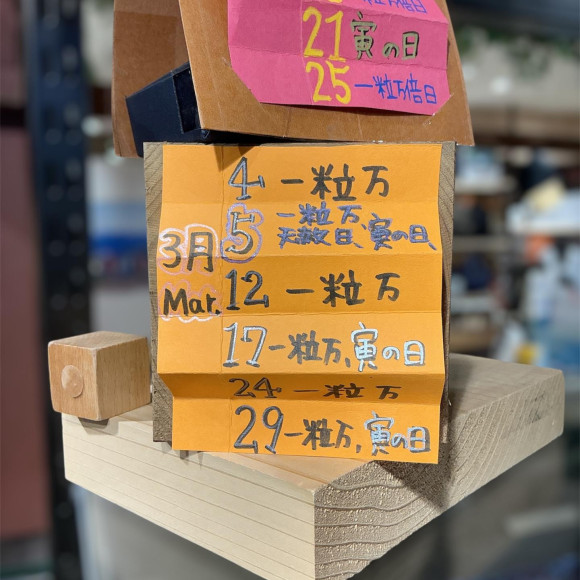 21 寅の日
25 一粒万倍日
3月
Mar.
4 一粒万
5 一粒万、
天赦日、寅の日、
12 一粒万
17 一粒万、寅の日
24 一粒万
29 一粒万、寅の日